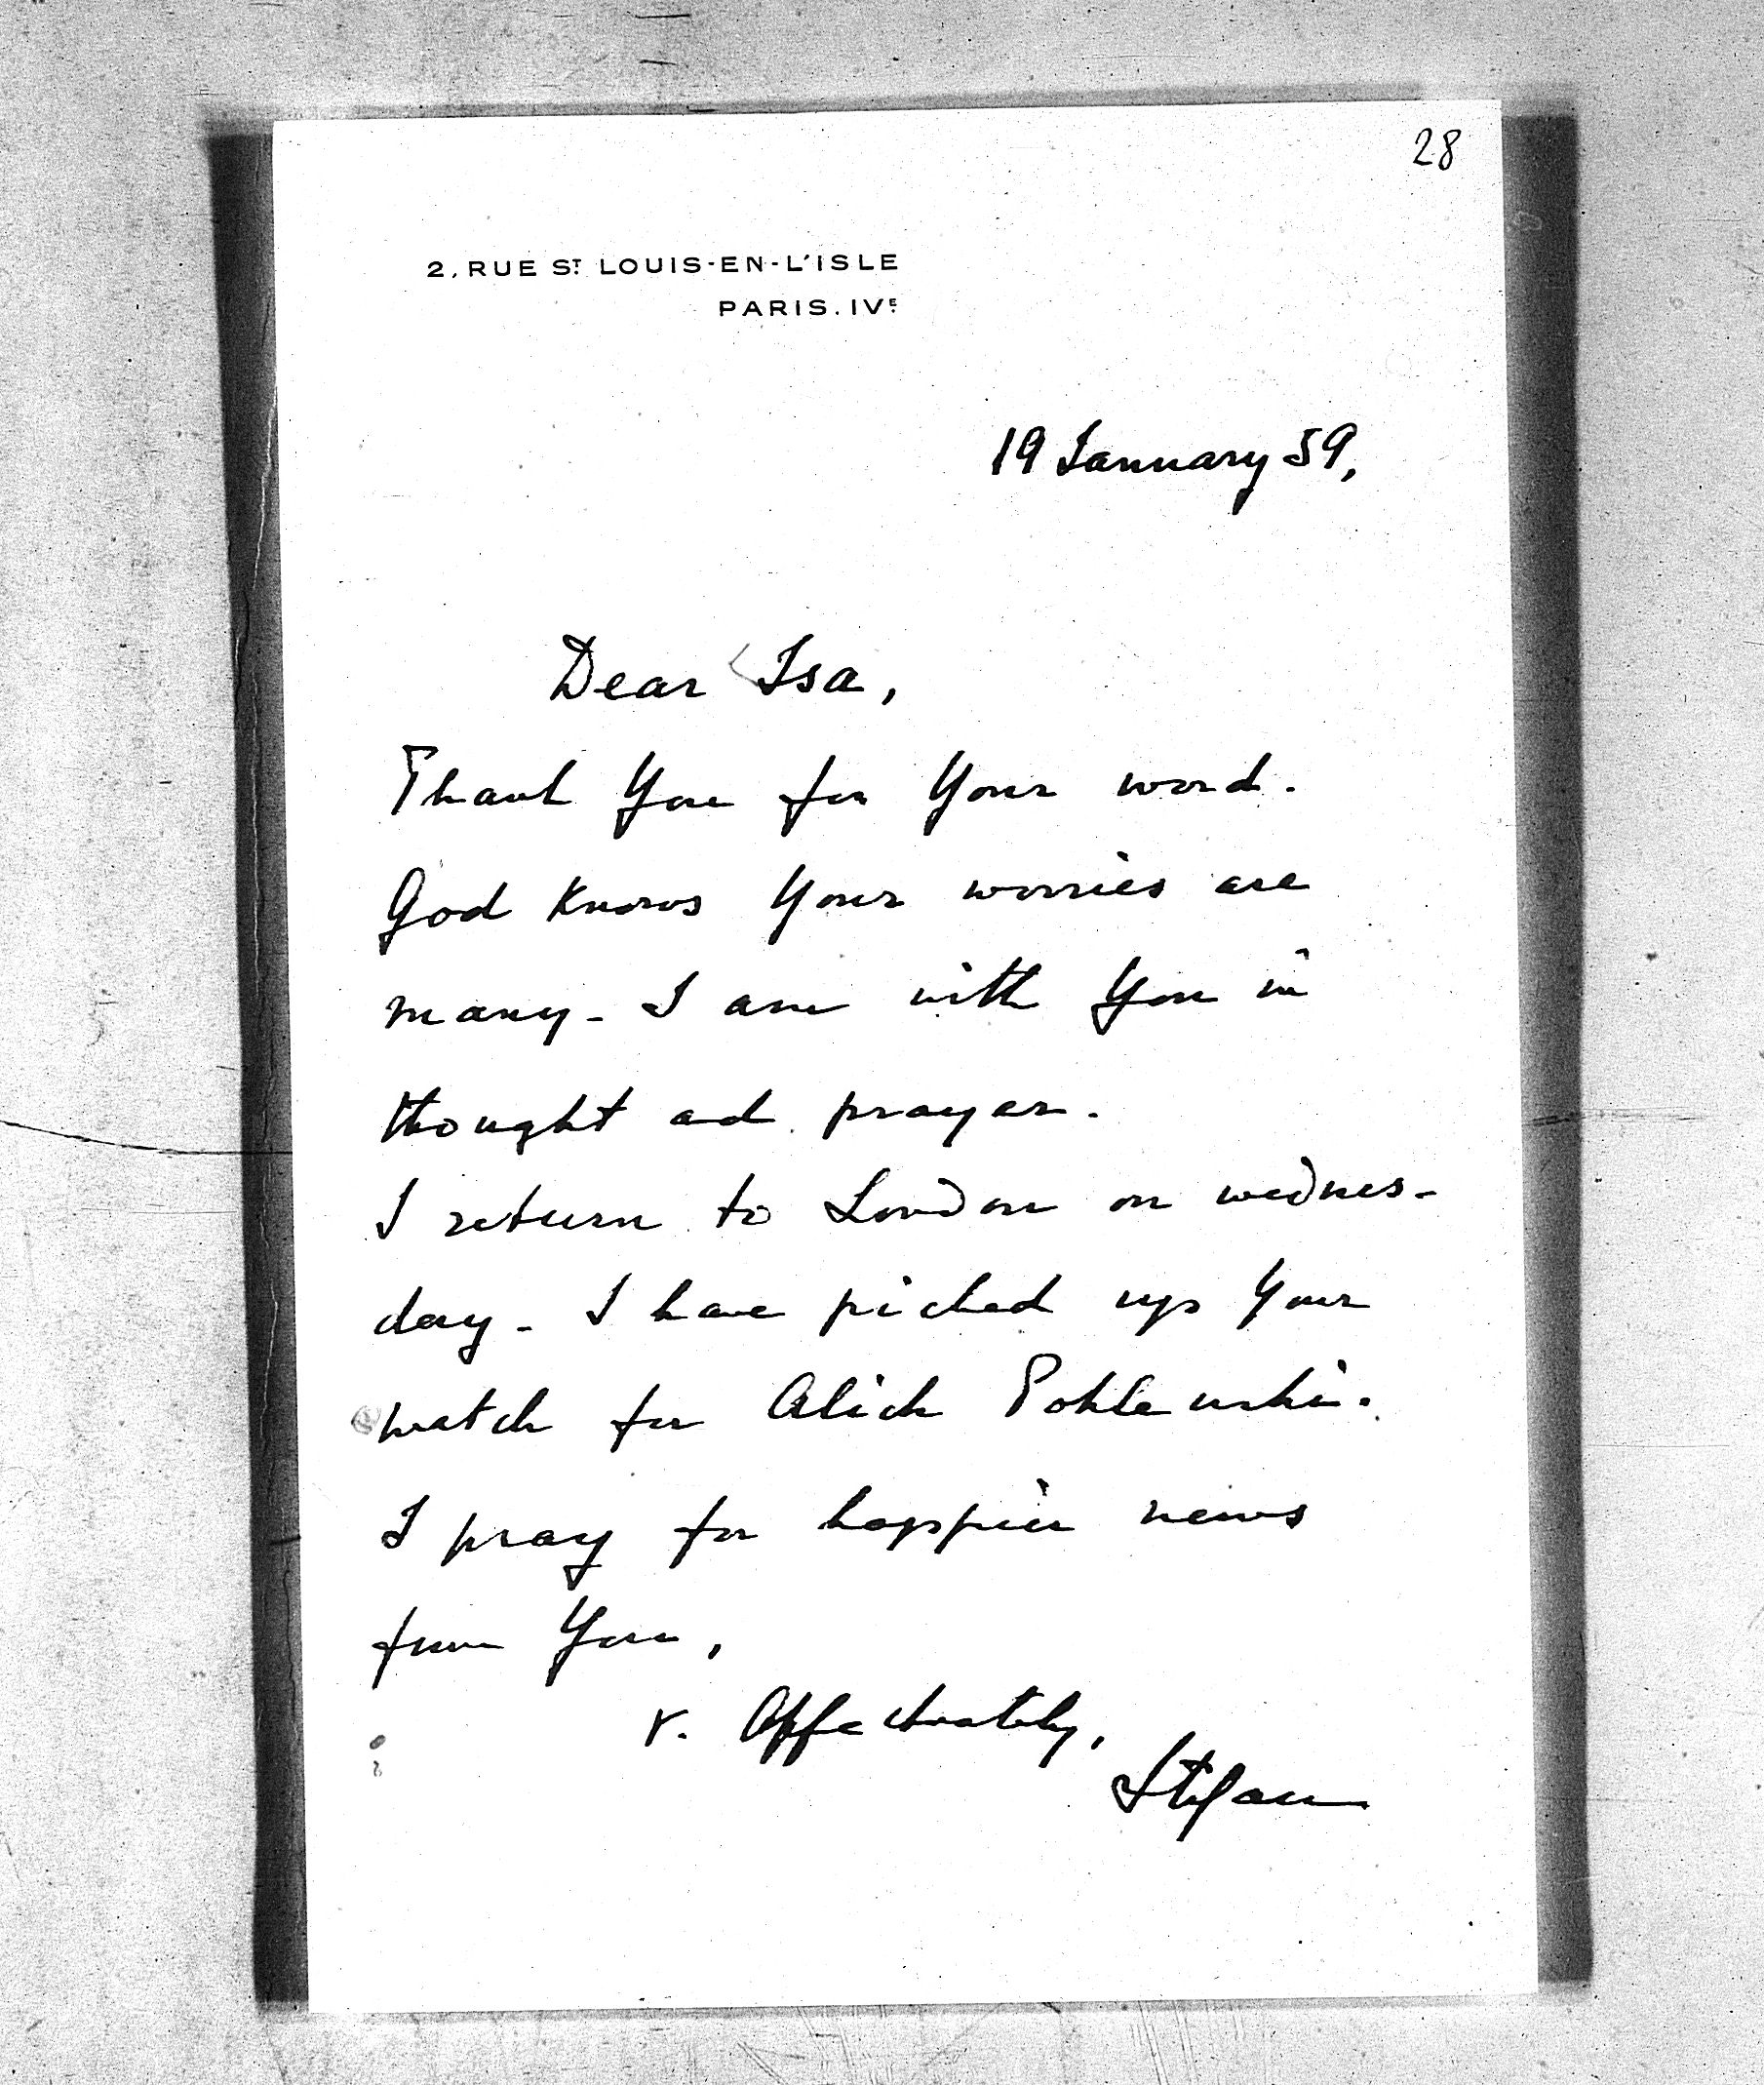 28
2, RUE ST LOUIS-EN-L'ISLE
PARIS. IVE
19 January 59,
Dear Isa,
Thank You for Your word.
God knows Your worries are
many - I am with You in
thought and prayer.
I return to London on wednes-
day - I have picked up Your
watch for Alick
I pray for happier news
from You,
v. Affectionately,
Stefan